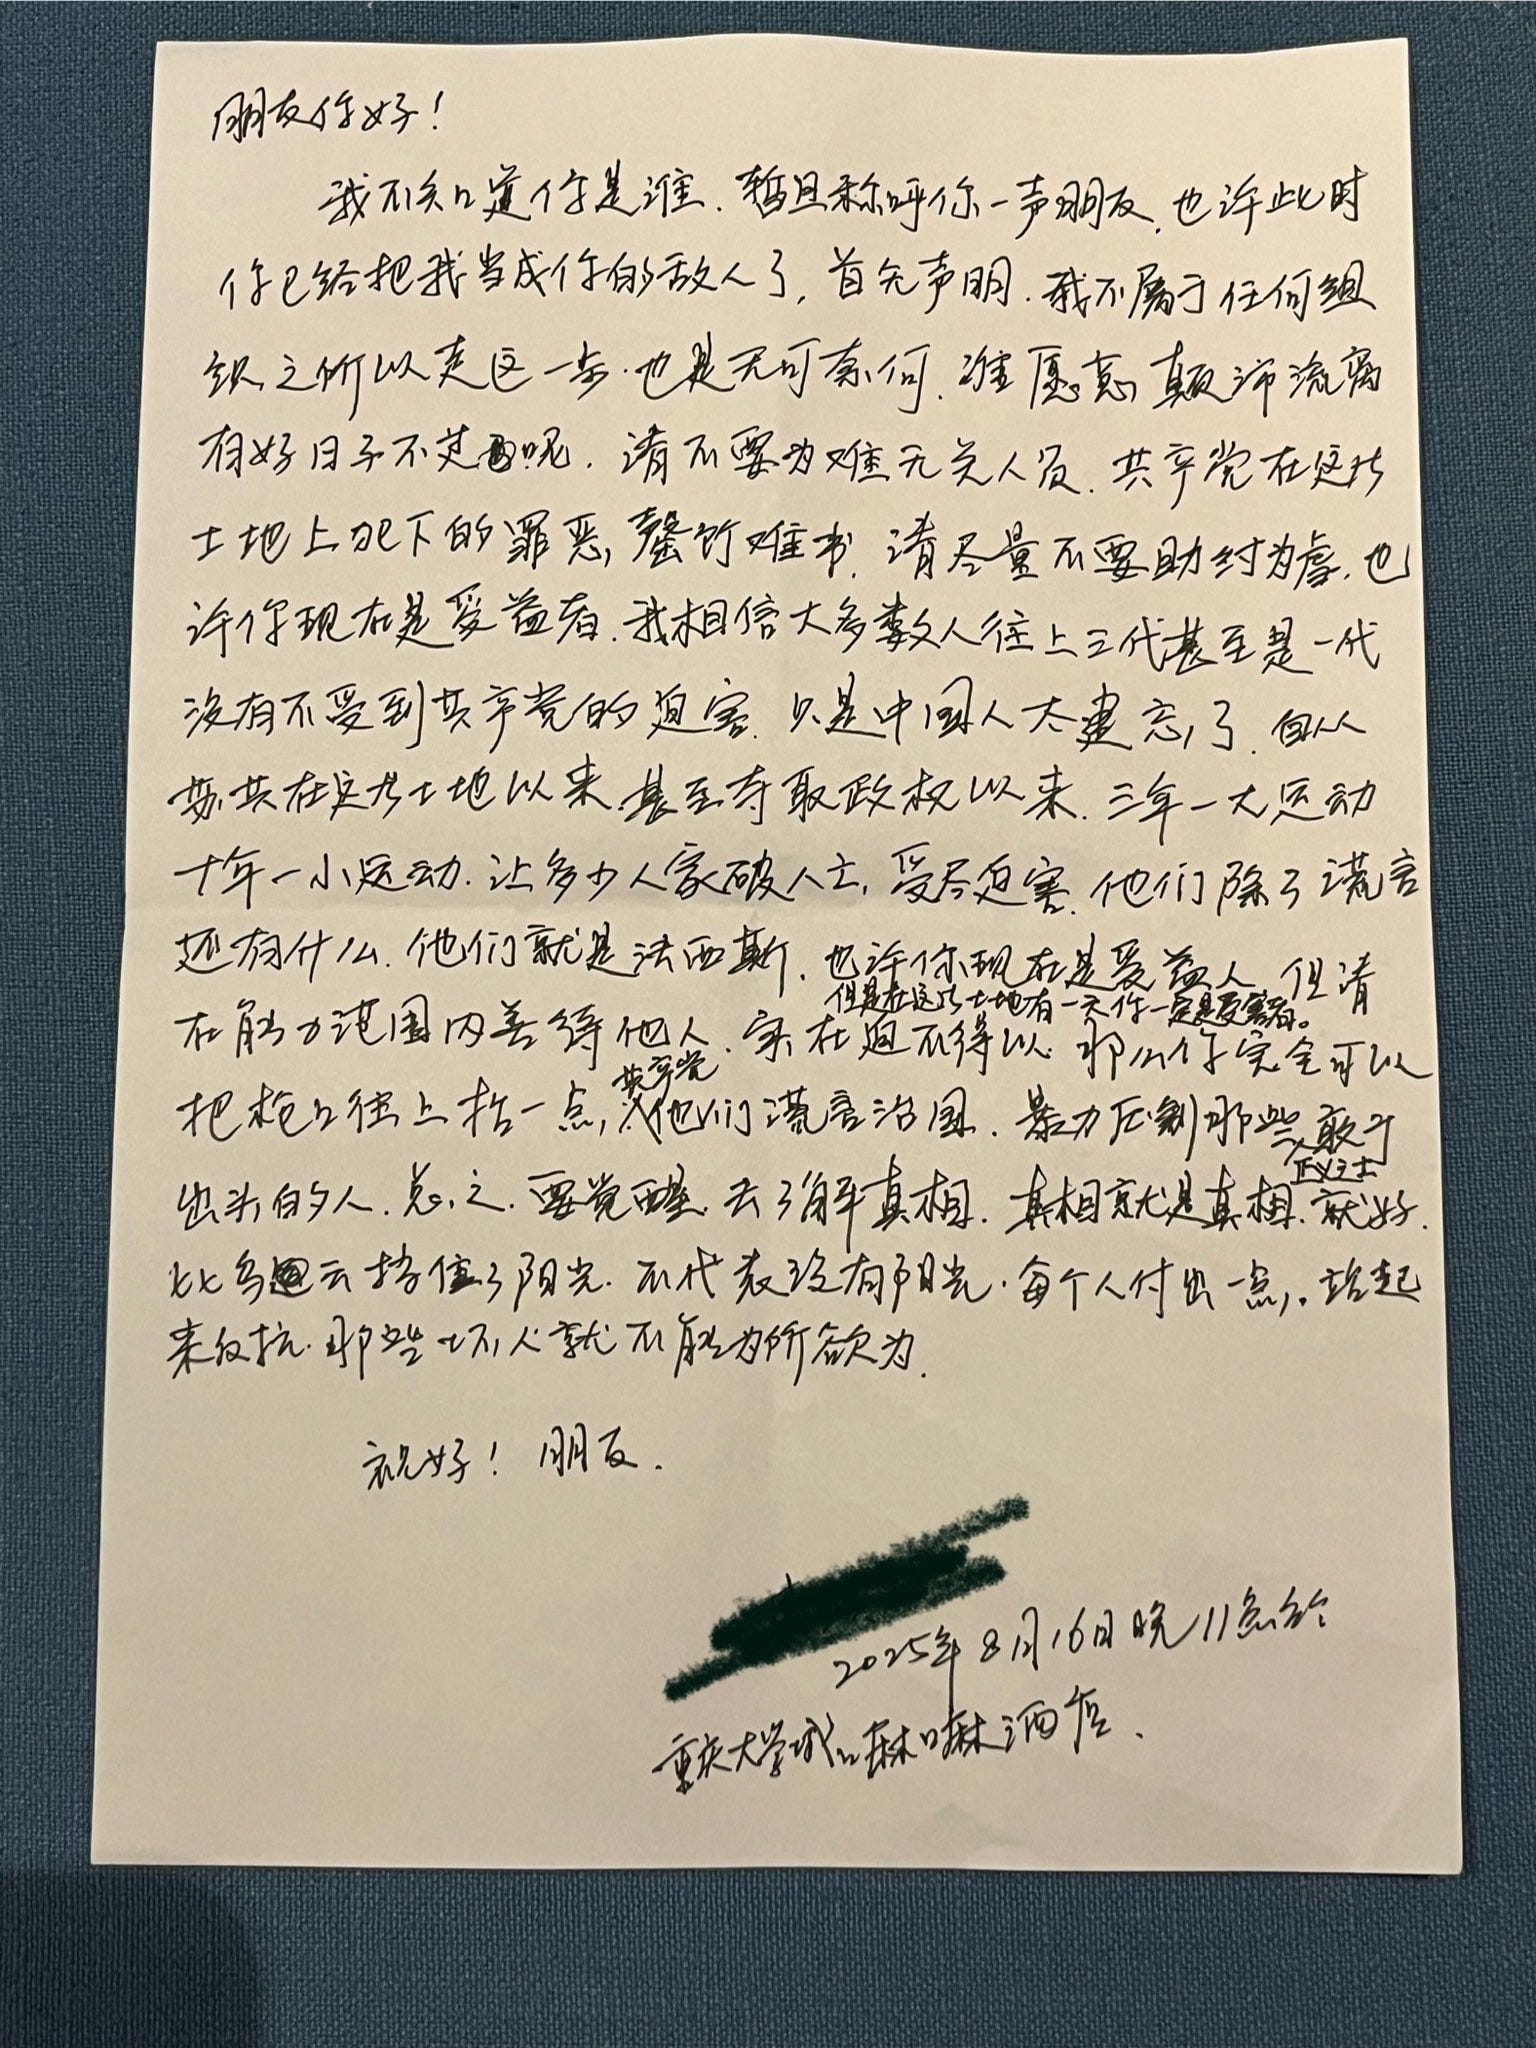 朋友你好！
我不知道你是谁．暂且称呼你一声朋友．也许此时
你已经把我当成你的敌人了．首先声明．我不属于任何组
织之所以走这一步．也是无可奈何．谁愿意颠沛流离
有好日子不过呢．请不要为难无关人员．共产党在这片
土地上犯下的罪恶，罄竹难书．请尽量不要助纣为虐．也
许你现在是受益者．我相信大多数人往上三代甚至是一代
没有不受到共产党的迫害．只是中国人太健忘了．自从
苏共在这片土地以来．甚至夺取政权以来．三年一大运动
十年一小运动．让多少人家破人亡，受尽迫害．他们除了谎言
还有什么．他们就是法西斯．也许你现在是受益人
但是在这片土地有一天你一定是受害者。
但请
在能力范围内善待他人．实在迫不得以．那么你完全可以
把枪口往上抬一点，
共产党
他们谎言治国．暴力压制那些敢于
正义之士
出头的人．总之．要觉醒．去了解真相．真相就是真相．就好
比乌云挡住了阳光．不代表没有阳光．每个人付出一点，．站起
来反抗．那些坏人就不能为所欲为．
祝好！朋友．
2025年8月16日晚11点于
重庆大学城口麻麻酒店．